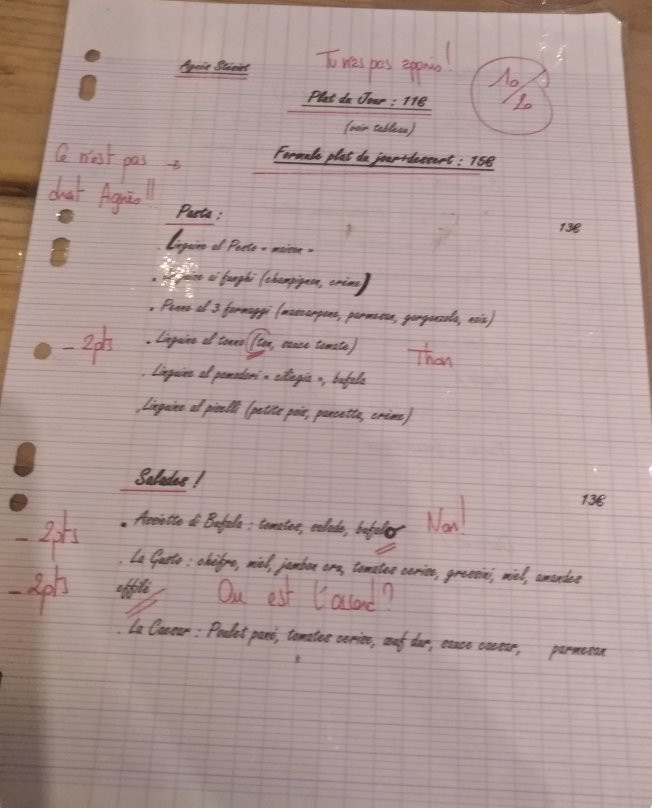 Agnès
Tu n'as pas appris !
10/20
Plat du Jour : 11€
(voir tableau)
Ce n'est pas →
Formule plat du jour+dessert : 15€
Agnès !!
Pasta :
13€
. Linguine al Pesto « maison »
. ai funghi (champignon, crème)
. Penne al 3 formaggi (mascarpone, parmesan, gorgonzola, noix)
- 2pts
. Linguine al tonno (ton, sauce tomate)
Thon
. Linguine al pomodori « ciliegia », bufala
. Linguine al piselli (petits pois, pancetta, crème)
Salades !
13€
. Assiette di Bufala : tomates, salade, bufalo
Non!
- 2pts
. La Gusto : chèvre, miel, jambon cru, tomates cerise, gressini, miel, amandes
- 2pts
effilé
Ou est l'accord ?
. La Caesar : Poulet pané, tomates cerise, œuf dur, sauce caesar, parmesan